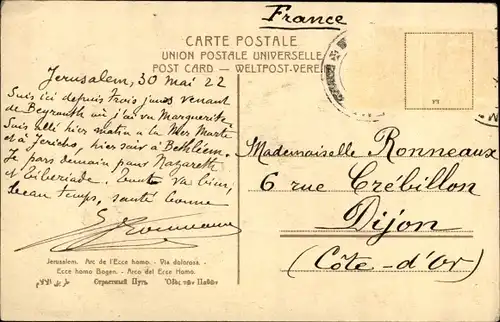 France
CARTE POSTALE
UNION POSTALE UNIVERSELLE
POST CARD — WELTPOST-VEREI
Jerusalem, 30 Mai 22
Suis ici depuis trois jours venant
de Beyrouth où j'ai vu Marguerite
Suis allé hier matin à la Mer Morte
et à Jéricho, hier soir à Bethléem.
Je pars demain pour Nazareth
et Tibériade. Toute va bien,
beau temps, santé bonne
Ronneaux
Mademoiselle Ronneaux
6 rue Crébillon
Dijon
(Côte-d'Or)
Jerusalem. Arc de l'Ecce homo. - Via dolorosa. -
Ecce homo Bogen. - Arco del Ecce Homo.
Страстный Путь.